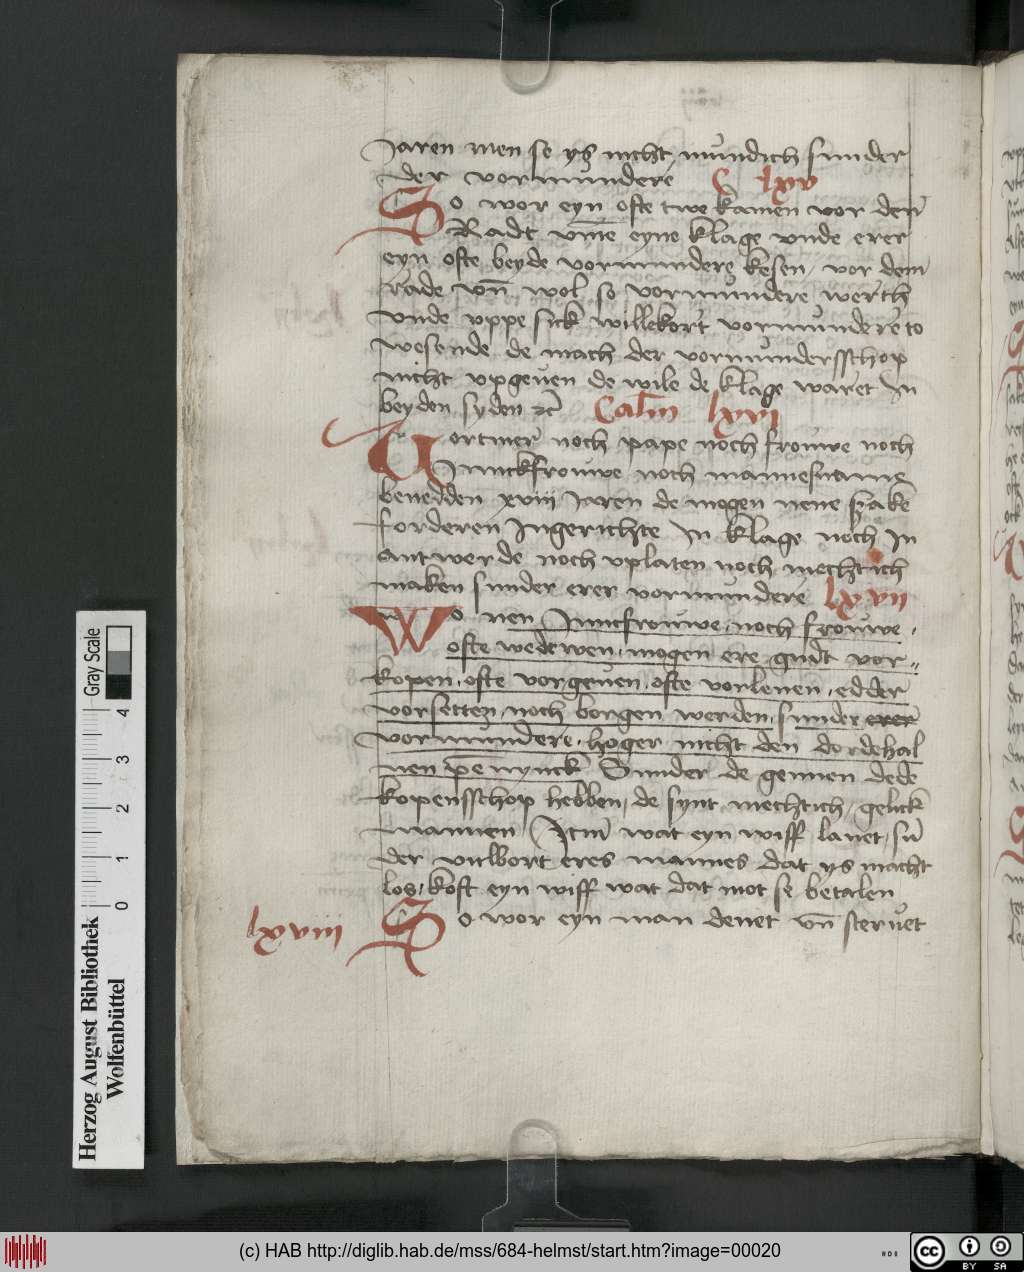 Jaren men se ys nicht mundich sunder
der vormundere C lxv
So wor eyn ofte twe kamen vor den
Radt vm̄e eyne klage vnde erer
eyn ofte beyde vormundere kesen / vor dem
rade vn̄ wol so vormundere werth
vnde vppe sick willekort vormundere to
wesende de mach der vormundersschop
nicht vpgeuen de wile de klage waret In
beyden syden Cap̄m lxvi
Vortmer noch pape noch frouwe noch
Junckfrouwe noch mannesname
benedden xviii Jaren de mogen nene sake
forderen Ingerichte In klage noch In
antwerde noch vplaten noch mechtich
maken sunder erer vormundere lxvii
Wo nen Juncfrouwe noch frouwe
ofte wedewen mogen ere gudt vor
kopen ofte vorgeuen ofte vorlenen edder
vorsetten noch borgen werden sunder erer
vormundere hoger nicht den dordehal
uen pēnynck Sunder de gennen dede
kopensschop hebben / de synt mechtich / gelick
mannen Jtm̄ wat eyn wiff lauet / sū
der vulbort eres mannes dat ys macht
los / koft eyn wiff wat dat mot se betalen
lxviii So wor eyn man denet vn̄ steruet
Gray Scale
4 3 2 1 0
Herzog August Bibliothek
Wolfenbüttel
(c) HAB http://diglib.hab.de/mss/684-helmst/start.htm?image=00020
cc BY SA